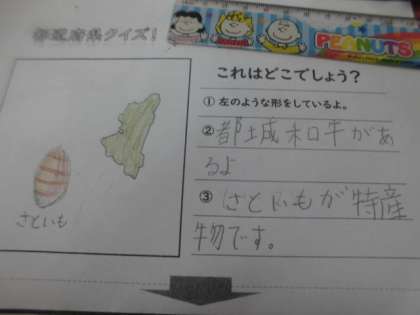 都道府県クイズ!
PEANUTS
これはどこでしょう?
① 左のような形をしているよ。
② 都城和牛があ
るよ
③ さといもが特産
物です。
さといも